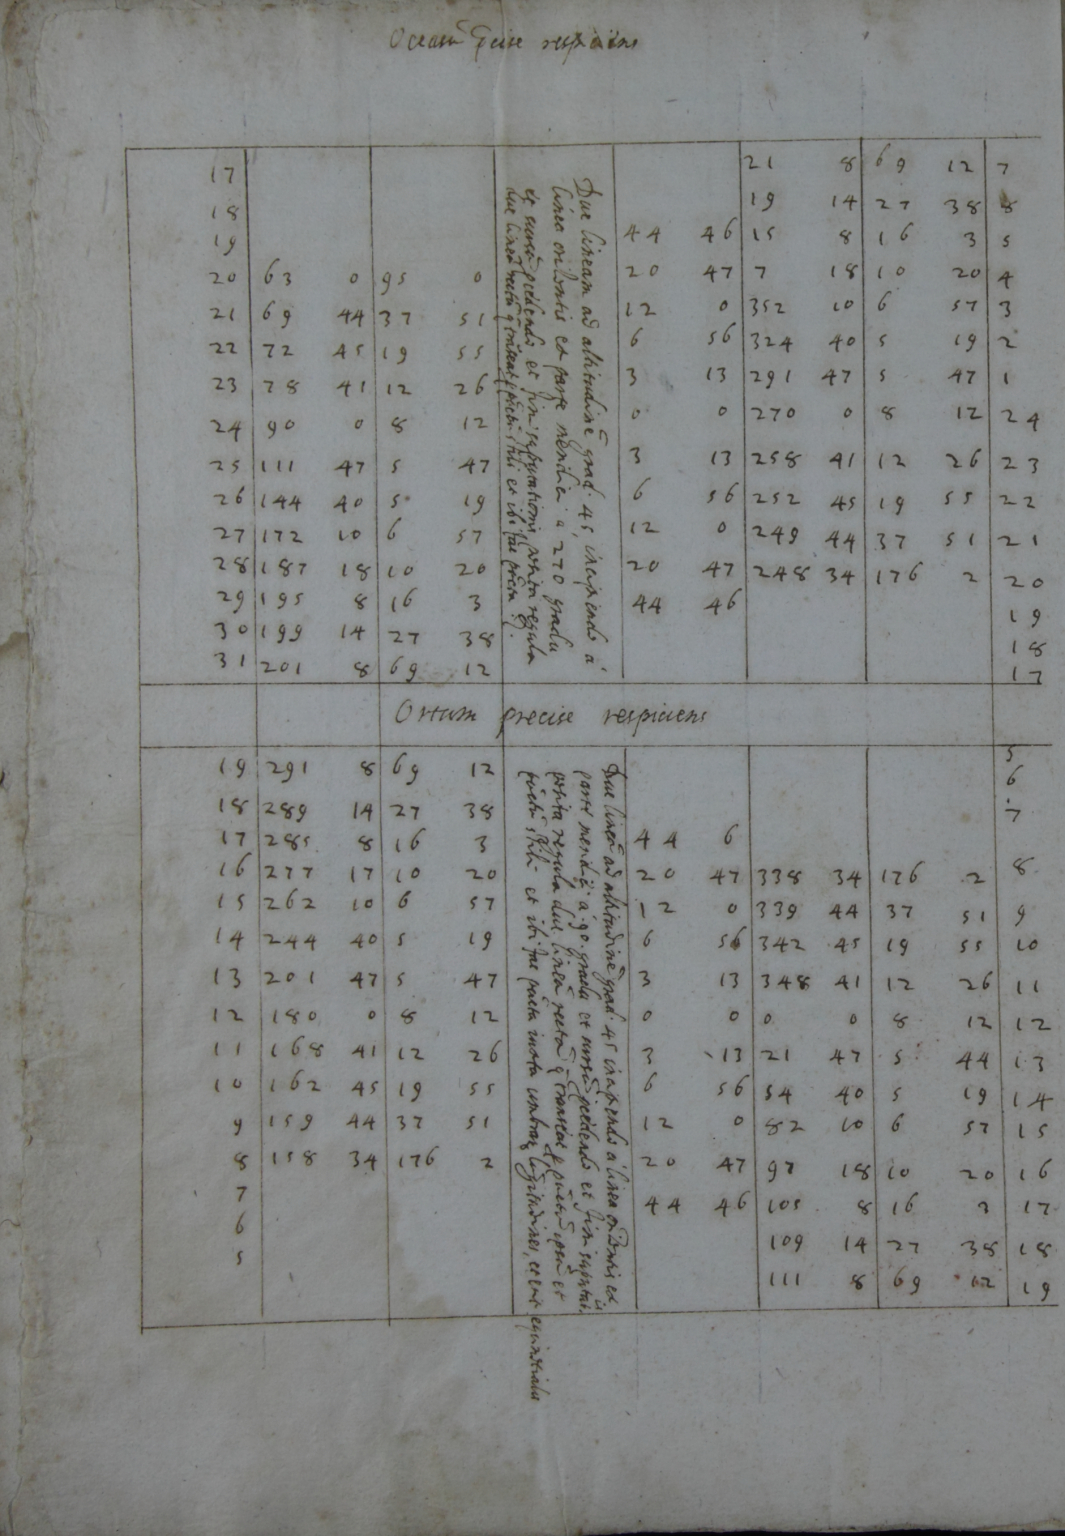 respiciens
17 21 8 69 12 7
18 19 14 27 38 8
19 44 46 15 8 16 3 5
20 63 0 95 0 20 47 7 18 10 20 4
21 69 44 37 51 12 0 352 10 6 57 3
22 72 45 19 55 6 56 324 40 5 19 2
23 78 41 12 26 3 13 291 47 5 47 1
24 90 0 8 12 0 0 270 0 8 12 24
25 111 47 5 47 3 13 258 41 12 26 23
26 144 40 5 19 6 56 252 45 19 55 22
27 172 10 6 57 12 0 249 44 37 51 21
28 187 18 10 20 20 47 248 34 176 2 20
29 195 8 16 3 44 46 19
30 199 14 27 38 18
31 201 8 69 12 17
Duc lineam ad altitudinē grad. 45, incipiendo à
linea et parte à 270 gradu
et posita regula
duc et ibi fac
Ortum precise respiciens
19 291 8 69 12 5
18 289 14 27 38 6
17 285 8 16 3 44 6 7
16 277 17 10 20 20 47 338 34 176 2 8
15 262 10 6 57 12 0 339 44 37 51 9
14 244 40 5 19 6 56 342 45 19 55 10
13 201 47 5 47 3 13 348 41 12 26 11
12 180 0 8 12 0 0 0 0 8 12 12
11 168 41 12 26 3 13 21 47 5 44 13
10 162 45 19 55 6 56 54 40 5 19 14
9 159 44 37 51 12 0 82 10 6 57 15
8 158 34 176 2 20 47 97 18 10 20 16
7 44 46 105 8 16 3 17
6 109 14 27 38 18
5 111 8 69 12 19
Duc lineā ad altitudinē grad. 45 incipiendo à linea et
parte à 90. gradu et
posita regula duc lineā rectā et
et ibi fac iuxta